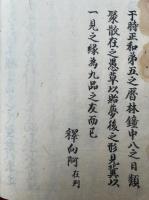 于時正和第五之暦林鐘中八之日類
聚散在之愚草以貽夢後之形見冀以
一見之縁為九品之友而已
釋白阿在判